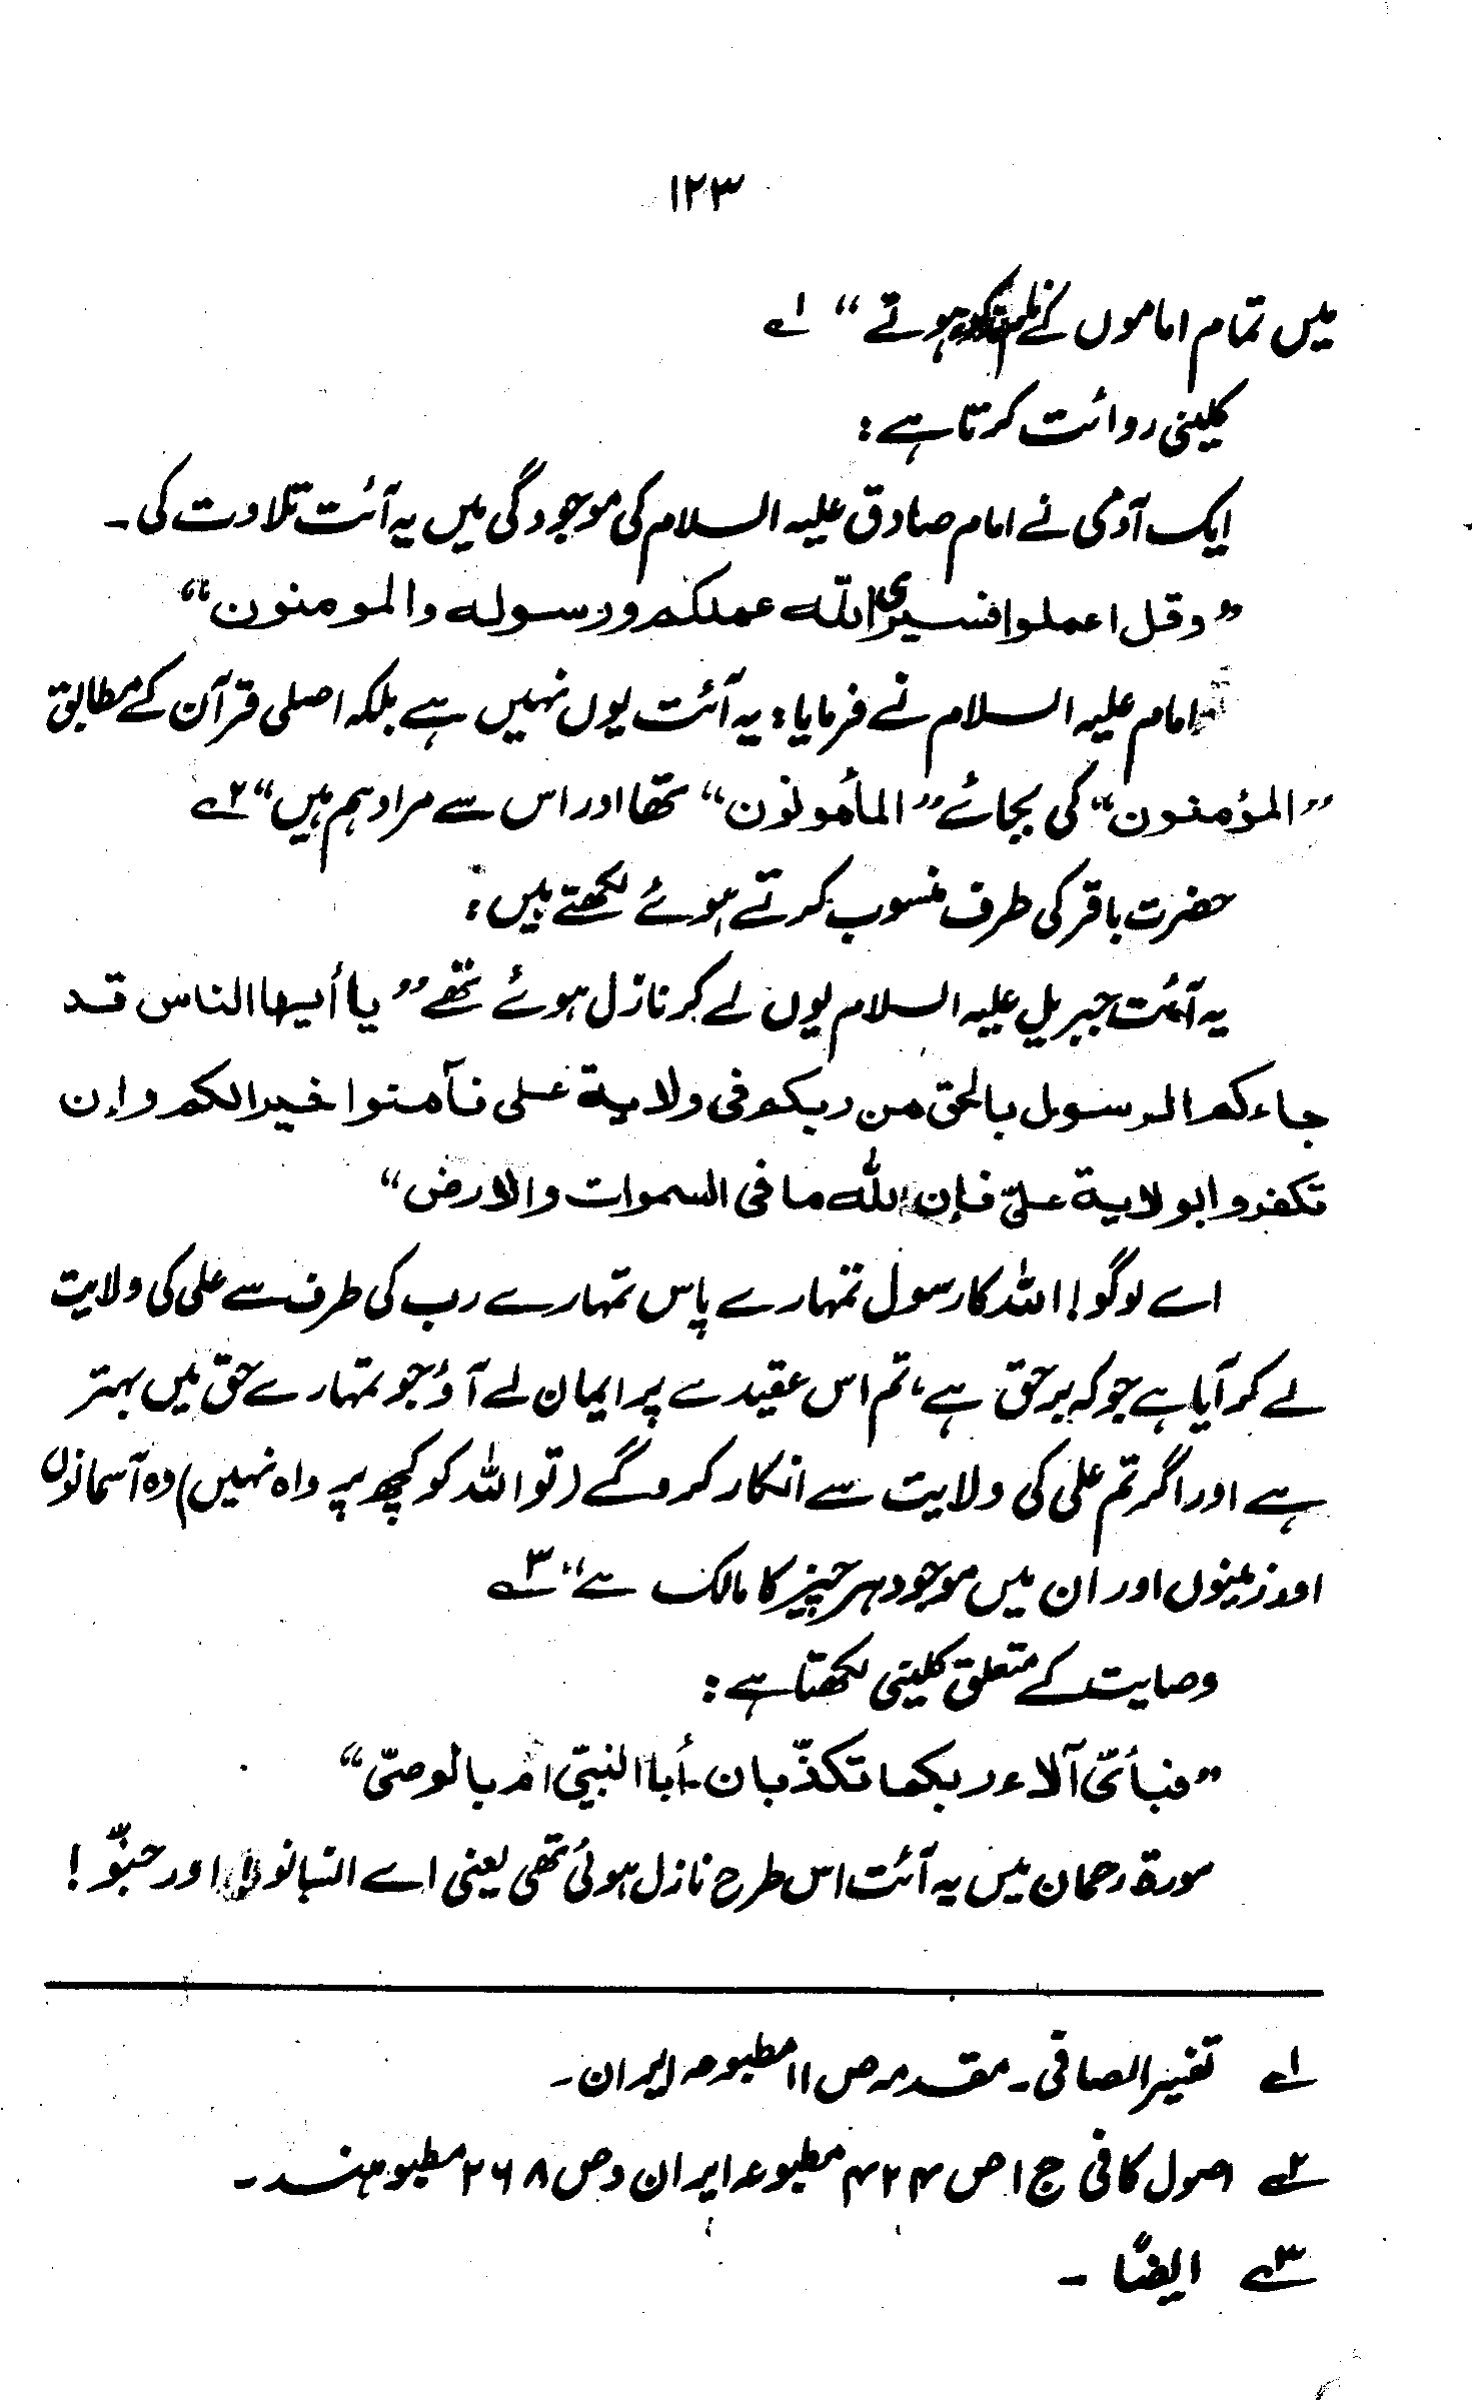 ۱۲۳
میں تمام اماموں کے نام ہوتے“ ۱ے
کلینی روائت کرتا ہے:
ایک آدمی نے امام صادق علیہ السلام کی موجودگی میں یہ آئت تلاوت کی۔
”وقل اعملوا فسیری اللّٰه عملکم ورسوله والمومنون“
امام علیہ السلام نے فرمایا: یہ آئت یوں نہیں ہے بلکہ اصلی قرآن کے مطابق
”المؤمنون“ کی بجائے ”المأمونون“ تھا اور اس سے مراد ہم ہیں“ ۲ے
حضرت باقر کی طرف منسوب کرتے ہوئے لکھتے ہیں:
یہ آئت جبریل علیہ السلام یوں لے کر نازل ہوئے تھے ”یا أیها الناس قد
جاءکم الرسول بالحق من ربکم فی ولایة علی فآمنوا خیرا لکم وإن
تکفروا بولایة علیّ فإن للّٰه ما فی السموات والارض“
اے لوگو! اللہ کا رسول تمہارے پاس تمہارے رب کی طرف سے علی کی ولایت
لے کر آیا ہے جو کہ برحق ہے، تم اس عقیدے پر ایمان لے آؤ جو تمہارے حق میں بہتر
ہے اور اگر تم علی کی ولایت سے انکار کرو گے (تو اللہ کو کچھ پرواہ نہیں) وہ آسمانوں
اور زمینوں اور ان میں موجود ہر چیز کا مالک ہے“ ۳ے
وصایت کے متعلق کلینی لکھتا ہے:
”فبأیّ آلاء ربکما تکذّبان۔ أبا النبیّ ام بالوصیّ“
سورۃ رحمان میں یہ آئت اس طرح نازل ہوئی تھی یعنی اے انسانوں اور جنّو!
۱ے تفسیر الصافی۔ مقدمہ ص ۱۱ مطبوعہ ایران۔
۲ے اصول کافی ج ۱ ص ۴۲۴ مطبوعہ ایران وص ۲۶۸ مطبوعہ ہند۔
۳ے ایضًا ۔